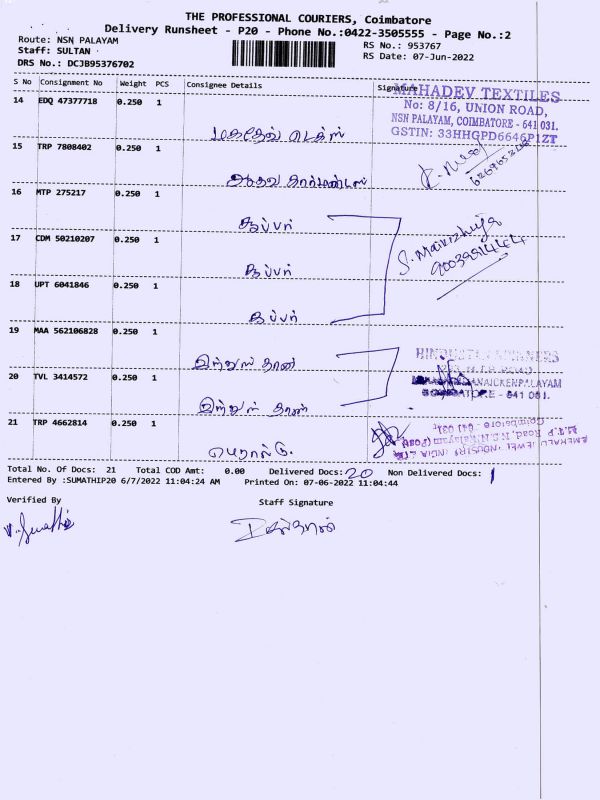 THE PROFESSIONAL COURIERS, Coimbatore
Delivery Runsheet - P20 - Phone No.:0422-3505555 - Page No.:2
Route: NSN PALAYAM
RS No.: 953767
Staff: SULTAN
RS Date: 07-Jun-2022
DRS No.: DCJB95376702
S No Consignment No Weight PCS Consignee Details Signature
MAHADEV TEXTILES
14 EDQ 47377718 0.250 1
No: 8/16, UNION ROAD,
NSN PALAYAM, COIMBATORE - 641 031.
மகாதேவ் டெக்ஸ்
GSTIN: 33HHGPD6646P1ZT
15 TRP 7808402 0.250 1
16 MTP 275217 0.250 1
சூப்பர்
17 CDM 50210207 0.250 1
சூப்பர்
18 UPT 6041846 0.250 1
சூப்பர்
19 MAA 562106828 0.250 1
இந்துஸ்தான்
20 TVL 3414572 0.250 1
COIMBATORE - 641 031.
இந்துஸ்தான்
21 TRP 4662814 0.250 1
EMERALD JEWEL INDUSTRY INDIA LTD
M.T.P. Road, N.S.N.Palayam (Post)
Coimbatore - 641 031.
Total No. Of Docs: 21 Total COD Amt: 0.00 Delivered Docs: 20 Non Delivered Docs: 1
Entered By :SUMATHIP20 6/7/2022 11:04:24 AM Printed On: 07-06-2022 11:04:44
Verified By Staff Signature